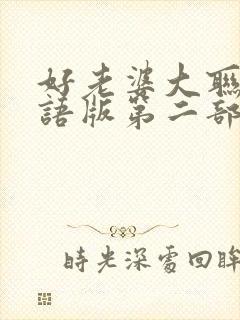 好老婆大聯
語版第二部
時光深處回眸